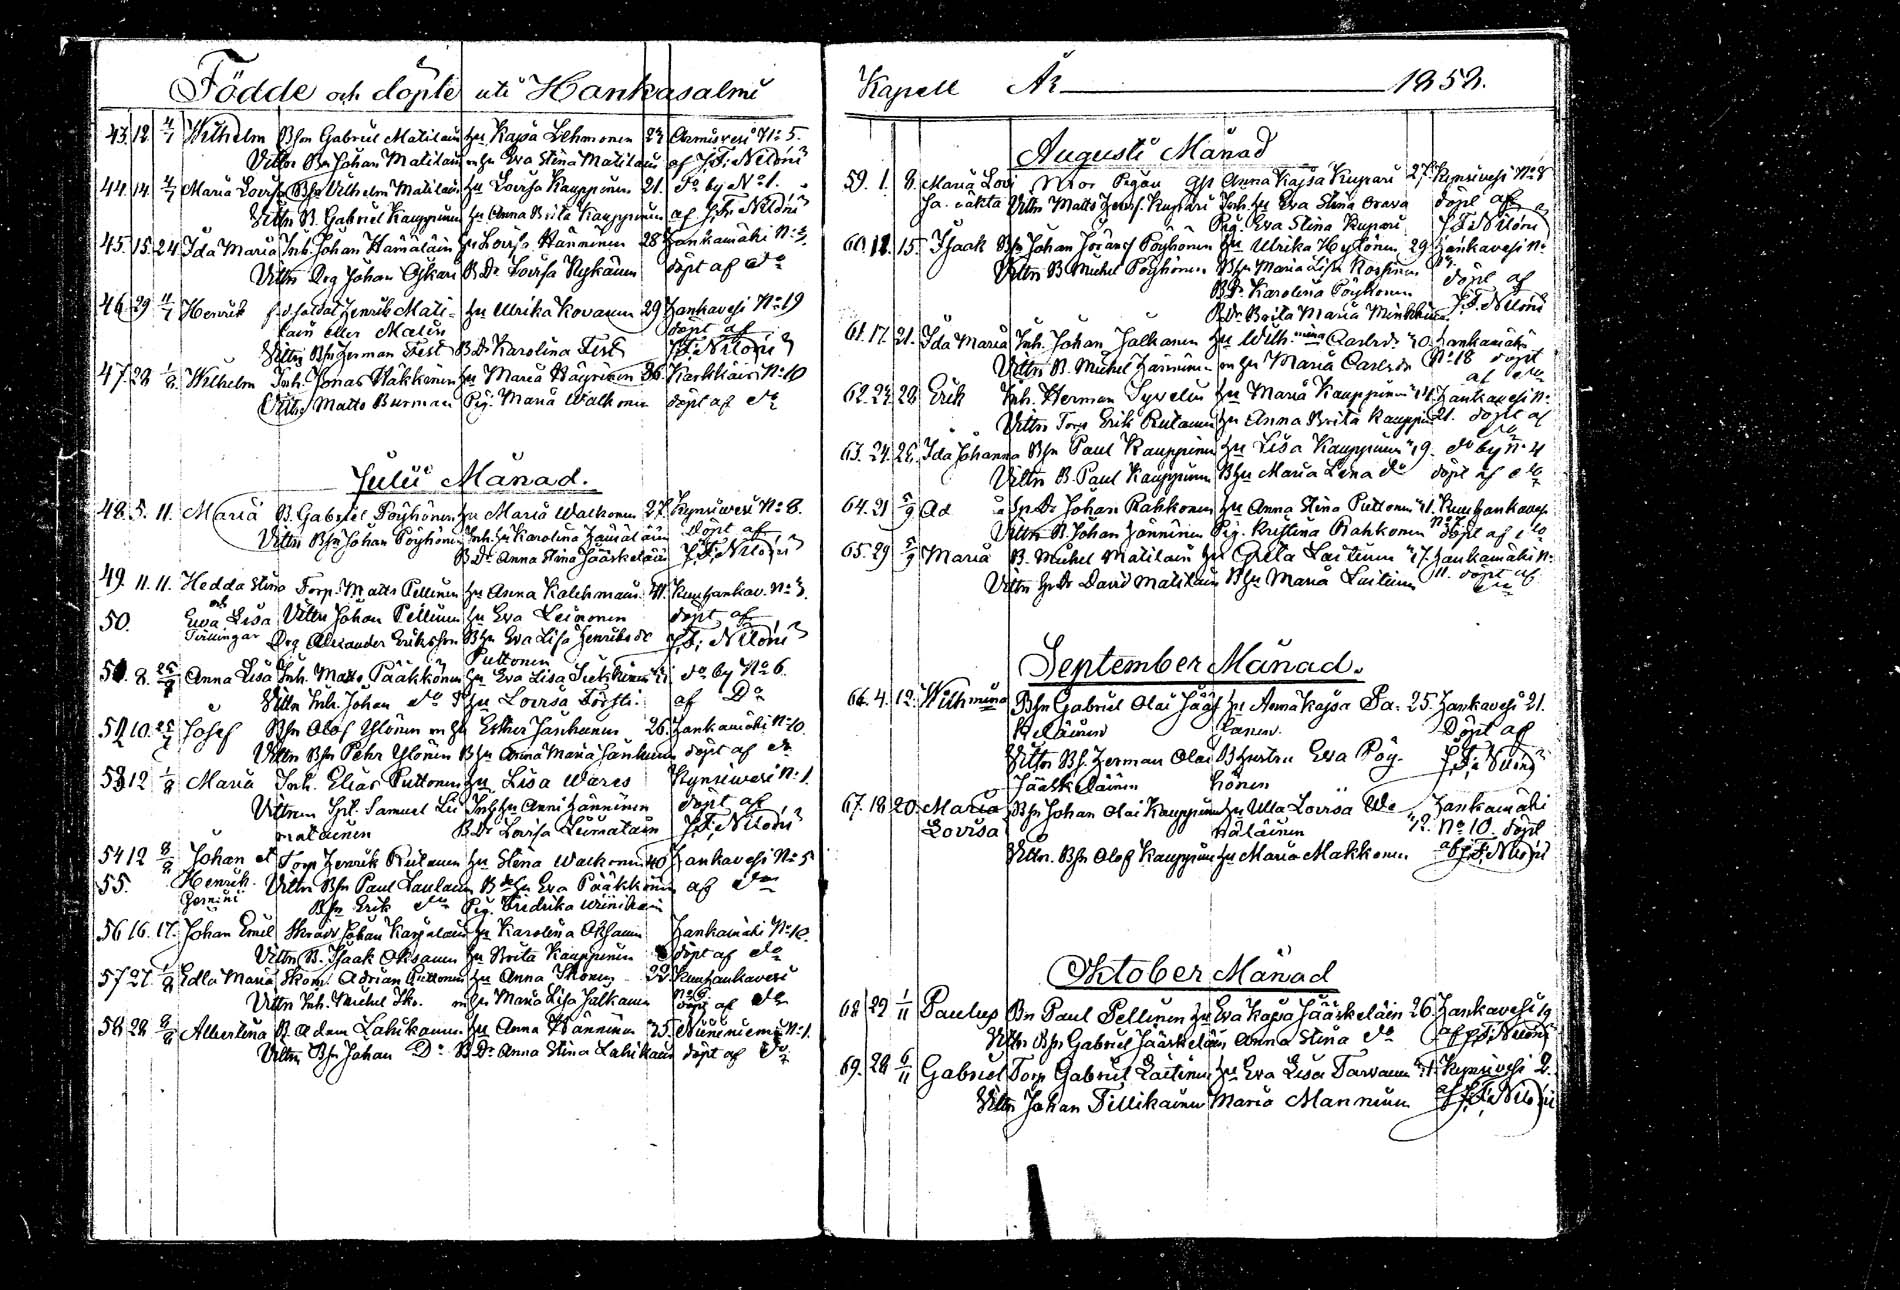 Födde och döpte uti Hankasalmi
43. 12. 4/7 Wilhelm Bsn Gabriel Matilain Hu Kajsa Lehmonen 23 Armisvesi No 5.
Vittn Bn Johan Matilain m hu Eva Stina Matilain af J.F. Nilonii
44. 14. 4/7 Maria Lovisa Bsn Vilhelm Matilain Hu Lovisa Kauppinen 21. Do by No 1.
Vittn B. Gabriel Kauppinen Hu Anna Brita Kauppinen af J.F. Nilonii
45. 15. 24 Ida Maria Inh. Johan Hämäläin Hu Lovisa Hänninen 28 Hankamäki No 3.
Vittn Drg Johan B.Dr Lovisa Nykänen döpt af Do
46 29 11/7 Henrik f.d. Soldat Henrik Mati- Hu Ulrika Kovanen 29 Hankavesi No 19
lain eller Malin döpt af
Vittn Bsn Herman Fest B.Dr Karolina Fest J.F. Nilonii
47. 28 1/8 Wilhelm Inh. Jonas Häkkinen Hu Maria Häyrinen 36. Karkkais No 10
Vittn Matts Burman Pig. Maria Walkonen döpt af Do
Julii Månad.
48. 5. 11. Maria B. Gabriel Pöyhönen Hu Maria Walkonen 27. Kynsivesi No 8.
Vittn Bsn Johan Pöyhönen Inh. Hu Karolina Hämäläin Döpt af
B.Dr Anna Stina Jääskeläin J.F. Nilonii
49. 11. 11. Hedda Stina Torp. Matts Pellinen Hu Anna Kalehmain 41. Kuuhankav. No 3.
och
50. Ewa Lisa Vittn Johan Pellinen Hu Eva Leinonen döpt af
Tvillingar Drg Alexander Eriksson B hu Eva Lisa Henriksdr J.F. Nilonii
Puttonen
51. 8. 25/7 Anna Lisa Inh. Matts Pääkkönen Hu Eva Lisa do by No 6.
Vittn Inh. Johan do Hu Lovisa Forsti. af Do
52 10. 25/7 Josef Bsn Olof Ylönen m hu Esther Janhunen 26. Hankamäki No 10.
Vittn Bsn Pehr Ylönen B hu Anna Maria Janhunen döpt af do
53 12 1/8 Maria Inh. Elias Puttonen Hu Lisa Wares Kynsivesi No 1.
Vittnen Spt. Samuel Lii Inh hu Anni Hänninen döpt af
matainen B.Dr Lovisa Liimatain J.F. Nilonii
54 12 8/8 Johan et Torp Henrik Rutanen Hu Stina Walkonen 40 Hankavesi No 5
55. Henrik. Vittn Bsn Paul Laulain B hu Eva Pääkkönen af do
Gemini Bsn Erik do Pig. Fridrika Wiinikain
56 16. 17. Johan Emil Skradd Johan Karjalain Hu Karolina Oksanen Hankamäki No 10.
Vittn B. Isaak Oksanen Hu Brita Kauppinen döpt af do
57 27 1/8 Edla Maria Skom. Adrian Puttonen Hu Anna Ikonen 22 Kuuhankavesi
Vittn Inh. Michel Iko. m hu Maria Lisa Jalkanen No 6 döpt af do
58 28 8/8 Albertina B. Adam Lahikainen Hu Anna Hänninen 35. Niininiemi No 1.
Vittn Bsn Johan Do B.Dr Anna Stina Lahikain döpt af do
Kapell År 1858.
Augusti Månad
59. 1. 8. Maria Lovi Mor Pigan Anna Kajsa Kupari 27. Kynsivesi No 8
sa. oäkta Vittn Matts Henrs. Kupari Inh. Hu Eva Stina Orava döpt af
Pig. Eva Stina Kupari J.F. Nilonii
60. 11. 15. Isaak Bsn Johan Pöyhönen Hu Ulrika Hytönen 29. Hankavesi No
Vittn B. Michel Pöyhönen B hu Maria Lisa döpt af
B.Dr Karolina Pöyhönen
B.Dr Brita Maria Minkkinen J.F. Nilonii
61. 17. 21. Ida Maria Inh. Johan Jalkanen Hu Wilhelmina Carlsdr 40. Hankamäki
Vittn B. Michel Hänninen m hu Maria Carlsdr No 18 döpt
af do
62. 23. 28. Erik Inh. Herman Hu Maria Kauppinen Hankavesi No
Vittn Torp Erik Rutanen Hu Anna Brita Kauppin 21. döpt af
do
63. 24. 28. Ida Johanna Bsn Paul Kauppinen Hu Lisa Kauppinen 19. do by No 4
Vittn B. Paul Kauppinen B hu Maria Lena do döpt af do
64. 31 5/9 Ad Johan Rahkonen Hu Anna Stina Puttonen 41. Kuuhankavesi
Vittn B. Johan Hänninen Pig. Kristina Rahkonen No 7 döpt af do
65. 29 5/9 Maria B. Michel Matilain Hu Greta Laitinen 47. Hankamäki No
Vittn David Matilain B hu Maria Laitinen 11. döpt af
do
September Månad.
66. 4. 12. Wilhmina Bsn Gabriel Olai Jääs Hu Anna Kajsa Pa- 25. Hankavesi 21.
keläinen kanen. Döpt af
Vittn Bs. Herman Olai B hustru Eva Pöy- J.F. Nilonii
Jääskeläinen hönen
67. 18 20. Maria Bsn Johan Olai Kauppinen Hu Ulla Lovisa We Hankamäki
Lovisa näläinen 42. No 10. döpt
Vittn. Bsn Olof Kauppinen Hu Maria Makkonen af J.F. Nilonii
Oktober Månad
68 29 1/11 Paulus Bn Paul Pellinen Hu Eva Kajsa Jääskeläin 26. Hankavesi 19
Vittn Bsn Gabriel Jääskeläin Anna Stina do af J.F. Nilonii
69. 28 6/11 Gabriel Torp Gabriel Laitinen Hu Eva Lisa Tarvainen 41. Kynsivesi 2.
Vittn Johan Tillikainen Maria Manninen af J.F. Nilonii